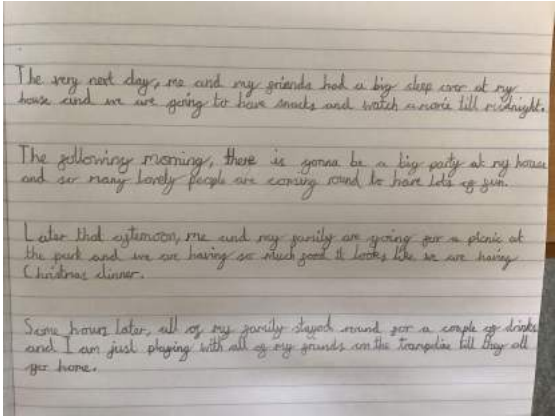 The very next day, me and my friends had a big sleep over at my
house and we are going to have snacks and watch a movie till midnight.
The following morning, there is gonna be a big party at my house
and so many lovely people are coming round to have lots of fun.
Later that afternoon, me and my family are going for a picnic at
the park and we are having so much food it looks like we are having
Christmas dinner.
Some hours later, all of my family stayed round for a couple of drinks
and I am just playing with all of my friends on the trampoline till they all
go home.